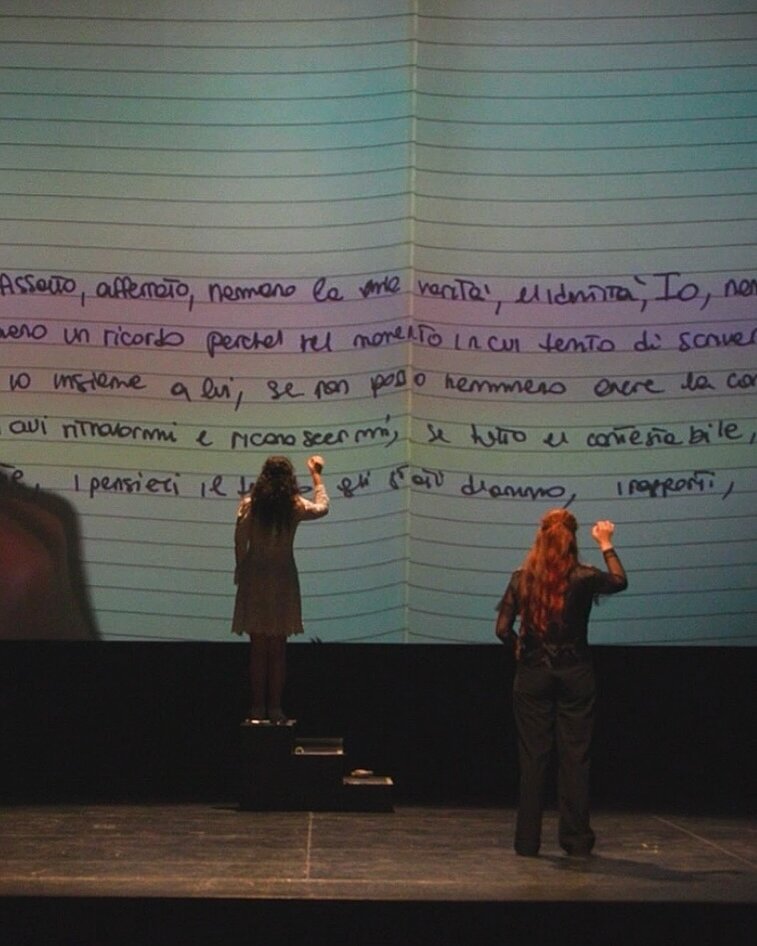 Assetto, afferrato, nemmeno la mia verità, Io, non
un ricordo perché nel momento in cui tento di scriver
io insieme a lui, se non posso nemmeno avere la
cui ritrovarmi e riconoscermi, se tutto è contestabile,
i pensieri, gli d'animo, i rapporti,